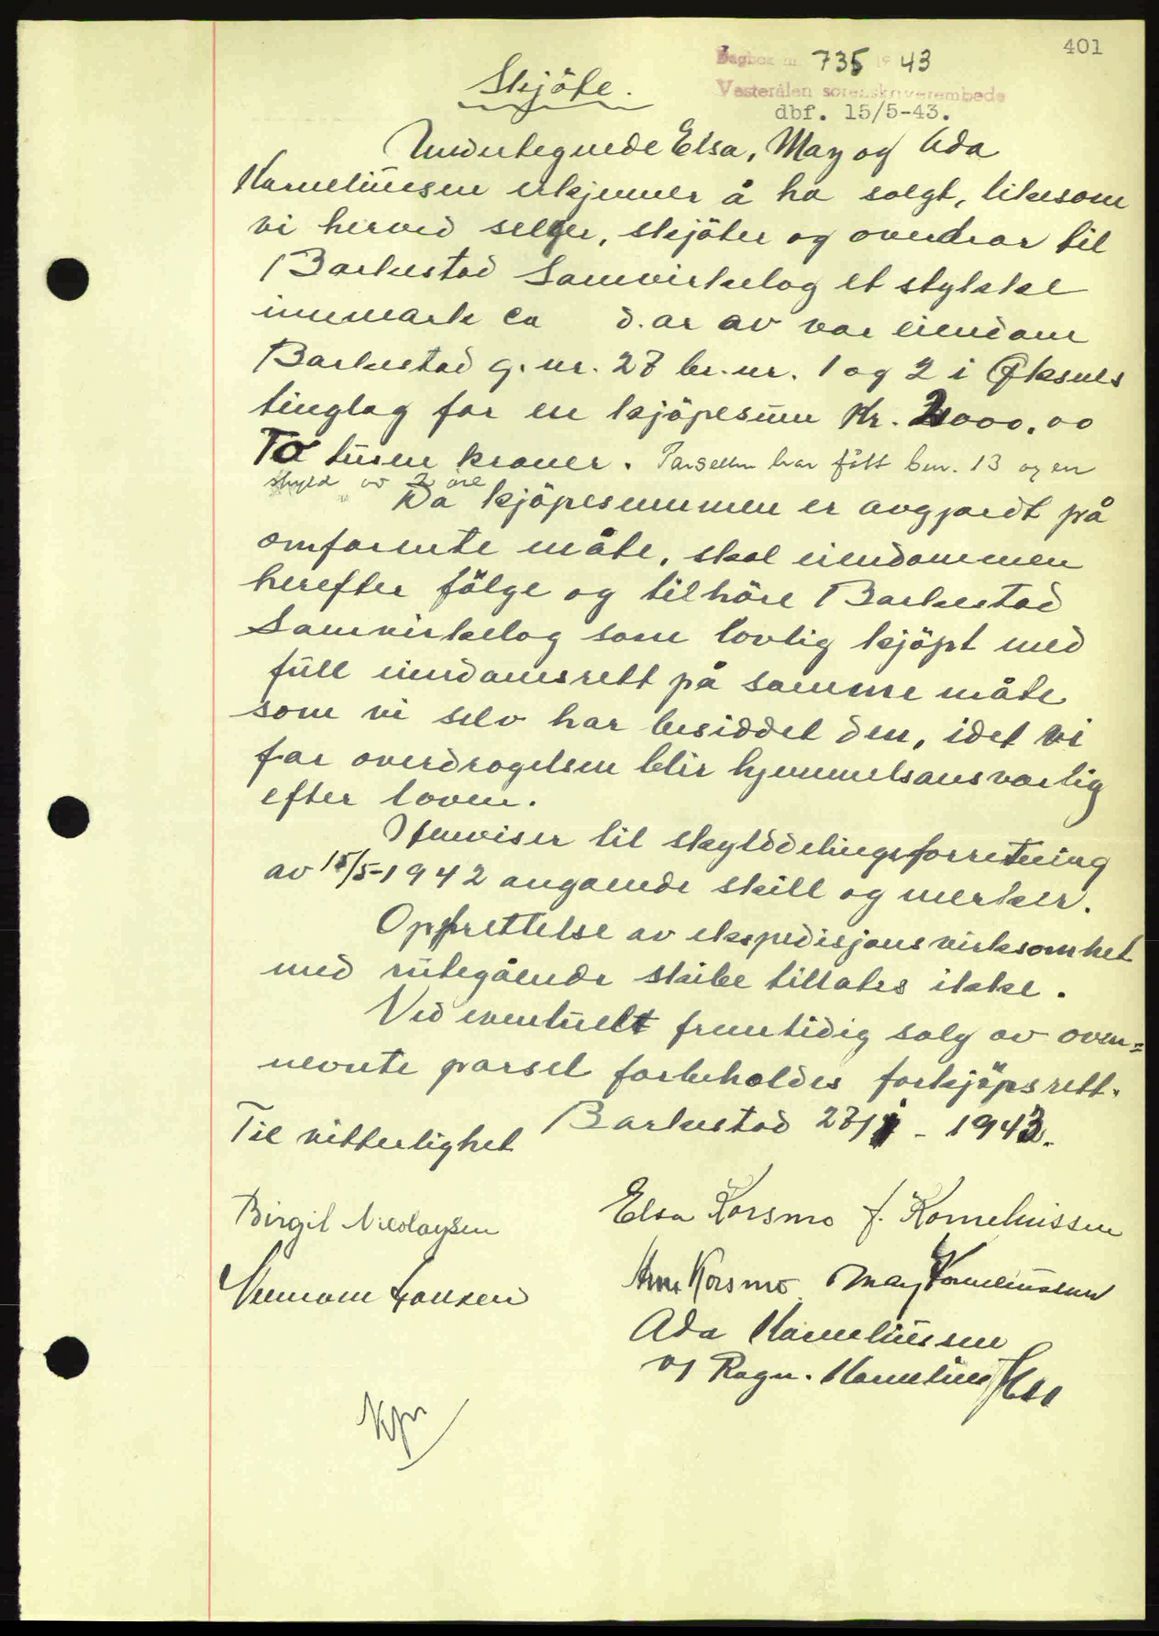 401
Dagbok nr 735 19 43
Vesterålen sorenskriverembede
dbf. 15/5-43.
Skjöte.
Undertegnede Elsa, May og Ada
Korneliussen erkjenner å ha solgt, likesom
vi herved selger, skjöter og overdrar til
Barkestad Samvirkelag et stykke
innmark ca d.ar av vor eiendom
Barkestad g.nr. 27 br.nr. 1 og 2 i Øksnes
tinglag for en kjöpesum Kr. 2000,00
To tusen kroner. Parsellen har fått bnr. 13 og en
skyld av 2 øre
Da kjöpesummen er avgjordt på
omforente måte, skal eiendommen
herefter fölge og tilhöre Barkestad
Samvirkelag som lovlig kjöpt med
full eiendomsrett på samme måte
som vi selv har besiddet den, idet vi
for overdragelsen blir hjemmelsansvarlig
efter loven.
Henviser til skylddelingsforretning
av 15/5-1942 angaende skill og merker.
Opprettelse av ekspedisjonsvirksomhet
med rutegående skibe tillates ikke.
Ved eventuelt fremtidig salg av oven=
nevnte parsel forbeholdes forkjöpsrett.
Barkestad 27/1 - 1943.
Til vitterlighet
Birgit Nicolaysen
Elsa Korsmo f. Korneliussen
Hansen
Arne Korsmo. May Korneliussen
Ada Korneliussen
v/ Ragn. Korneliussen